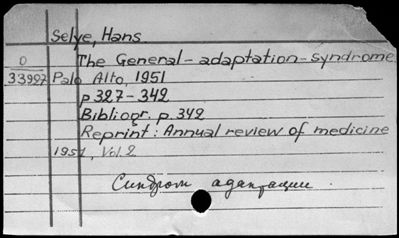 Selye, Hans.
0 The General-adaptation-syndrome
33927 Palo Alto, 1951
p 327-342
Bibliogr. p. 342
Reprint: Annual review of medicine
1951, Vol. 2
Синдром адаптации.